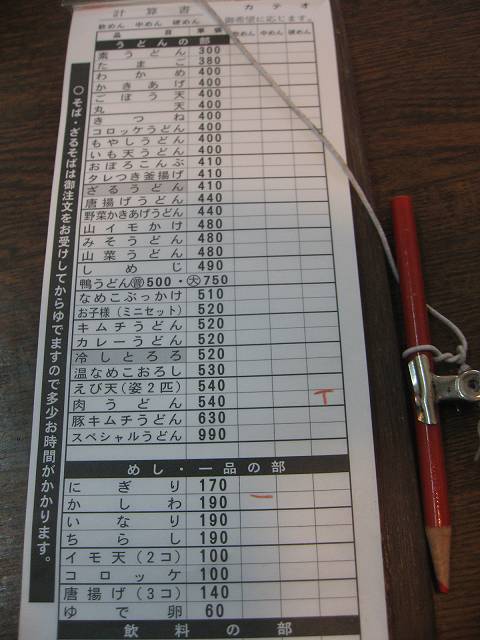 計算書 カテオ
軟めん 中めん 硬めん 御希望に応じます。
品目 単価 軟めん 中めん 硬めん
うどんの部
素うどん 300
たまご 380
わかめ 400
かきあげ 400
ごぼう天 400
丸天 400
きつね 400
コロッケうどん 400
もやしうどん 400
いも天うどん 400
おぼろこんぶ 410
タレつき釜揚げ 410
ざるうどん 410
唐揚げうどん 440
野菜かきあげうどん 440
山イモかけ 480
みそうどん 480
山菜うどん 480
しめじ 490
鴨うどん㊥500・㊛750
なめこぶっかけ 510
お子様(ミニセット) 520
キムチうどん 520
カレーうどん 520
冷しとろろ 520
温なめこおろし 530
えび天(姿2匹) 540
肉うどん 540 T
豚キムチうどん 630
スペシャルうどん 990
めし・一品の部
にぎり 170
かしわ 190 一
いなり 190
ちらし 190
イモ天(2コ) 100
コロッケ 100
唐揚げ(3コ) 140
ゆで卵 60
飲料の部
○そば・ざるそばは御注文をお受けしてからゆでますので多少お時間がかかります。